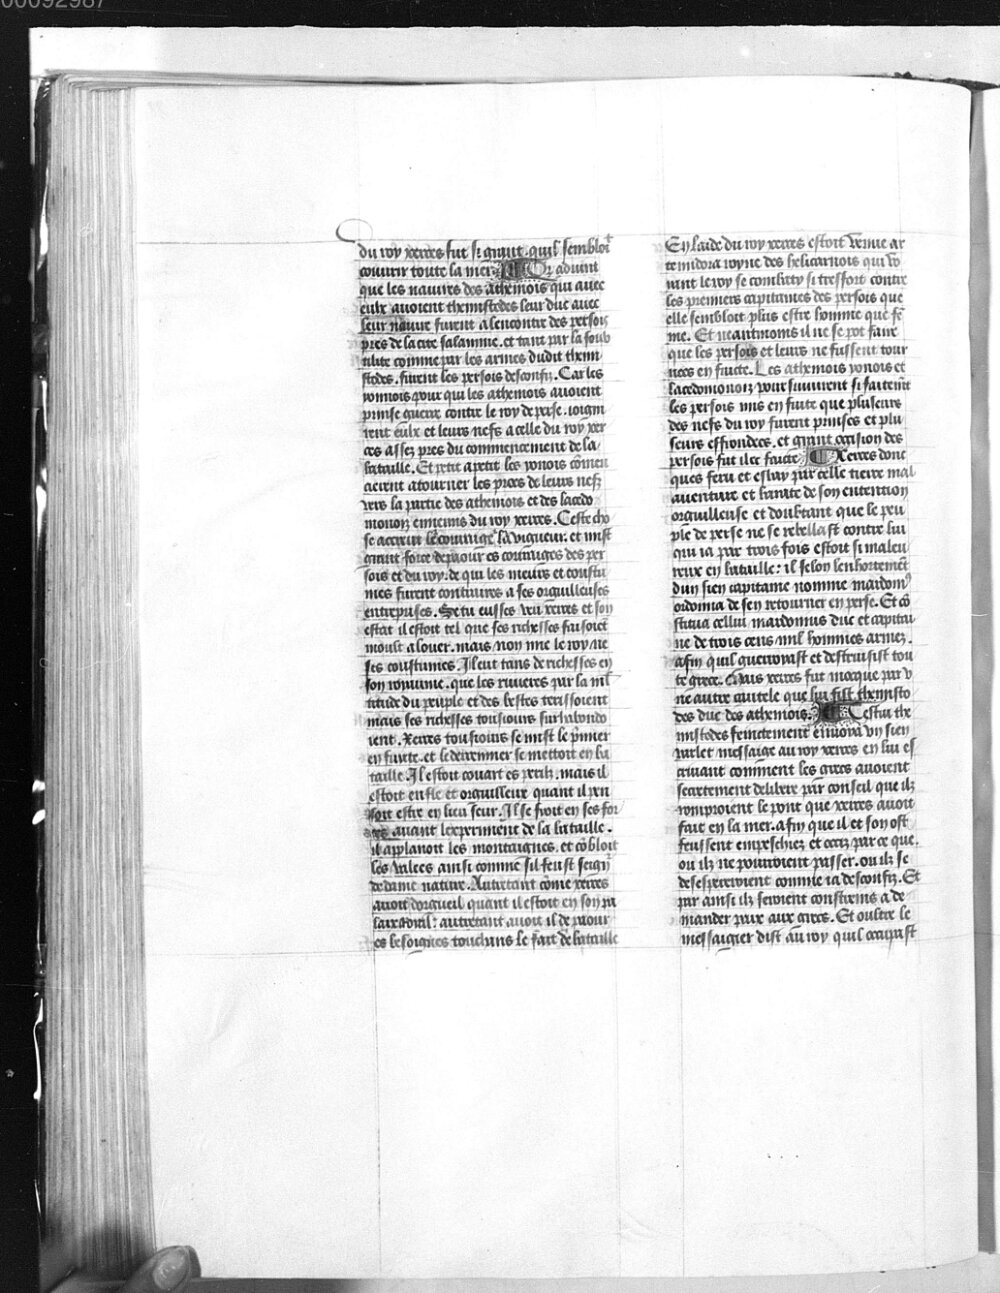 00092987
du roy xerces fut si grant quil sembloit
couurir toute la mer Or aduint
que les nauires des athenois qui auec
eulx auoient themistodes leur duc auec
leur nauire furent a lencontre des persois
pres de la cite salamine. et tant par la soub
tilite comme par les armes dudit themi
stodes. furent les persois desconfiz. Car les
yonnois pour qui les athenois auoient
prinse guerre contre le roy de perse. ioigni
rent eulx et leurs nefs a celle du roy xer
ces assez pres du commencement de la
bataille. Et petit a petit les yonois comen
cerent a tourner les proes de leurs nefz
vers la partie des athenois et des lacedo
monoiz ennemis du roy xerces. Ceste cho
se accreut le courage la vigueur. et mist
grant force de paour es courages des per
sois et du roy. de qui les meurs et coustu
mes furent contraires a ses orguilleuses
entreprises. Se tu eusses veu xerces et son
estat il estoit tel que ses richesses faisoiet
moult a louer. mais non mie le roy ne
ses coustumes. Il eut tans de richesses en
son royaume. que les riuieres par la ml
titude du peuple et des bestes tarissoient
mais ses richesses tousiours surhabondo
ient. Xerces tousiours se mist le pmier
en fuite. et le derrenier se mettoit en ba
taille. Il estoit couart es perilz. mais il
estoit enfle et orguilleux quant il pen
soit estre en lieu seur. Il se fioit en ses for
ces auant lexperiment de la bataille.
il applanoit les montaignes. et cobloit
les valees ainsi comme sil feust seign
de dame nature. Autretant come xerces
auoit dorgueil quant il estoit en son pa
lais royal: autretant auoit il de paour
es besoignes touchans le fait de bataille
En laide du roy xerces estoit venue ar
temidora royne des helicarnois qui vo
iant le roy se combaty si tresfort contre
les premiers capitaines des persois que
elle sembloit plus estre homme que fe
me. Et neantmoins il ne se pot faire
que les persois et leurs ne fussent tour
nees en fuite. Les athenois yonois et
lacedomonoiz poursuiuirent si faitemt
les persois mis en fuite que pluseurs
des nefs du roy furent prinses et plu
seurs effrondees. et grant occision des
persois fut ilec faicte Xerces donc
ques feru et esbay par celle tierce mal
auenture et barate de son entention
orguilleuse et doubtant que le peu
ple de perse ne se rebellast contre lui
qui ia par trois fois estoit si maleu
reux en bataille: il selon lenhortemet
dun sien capitaine nomme mardom9
ordonna de sen retourner en perse. Et co
stitua cellui mardomus duc et capitai
ne de trois cens mil hommes armez.
afin quil guerroiast et destruisist tou
te grece. Mais xerces fut mocque par v
ne autre cautele que lui fist themisto
des duc des athenois. Cestui the
mistodes feintement enuoya vn sien
varlet messaige au roy xerces en lui es
criuant comment les grecs auoient
secretement delibere par conseil que ilz
romproient le pont que xerces auoit
fait en la mer. afin que il et son ost
feussent empeschiez et occiz par ce que.
ou ilz ne pourroient passer. ou ilz se
desespereroient comme ia desconfiz. Et
par ainsi ilz seroient constrains a de
mander paix aux grecs. Et oultre le
messaigier dist au roy quil occupast